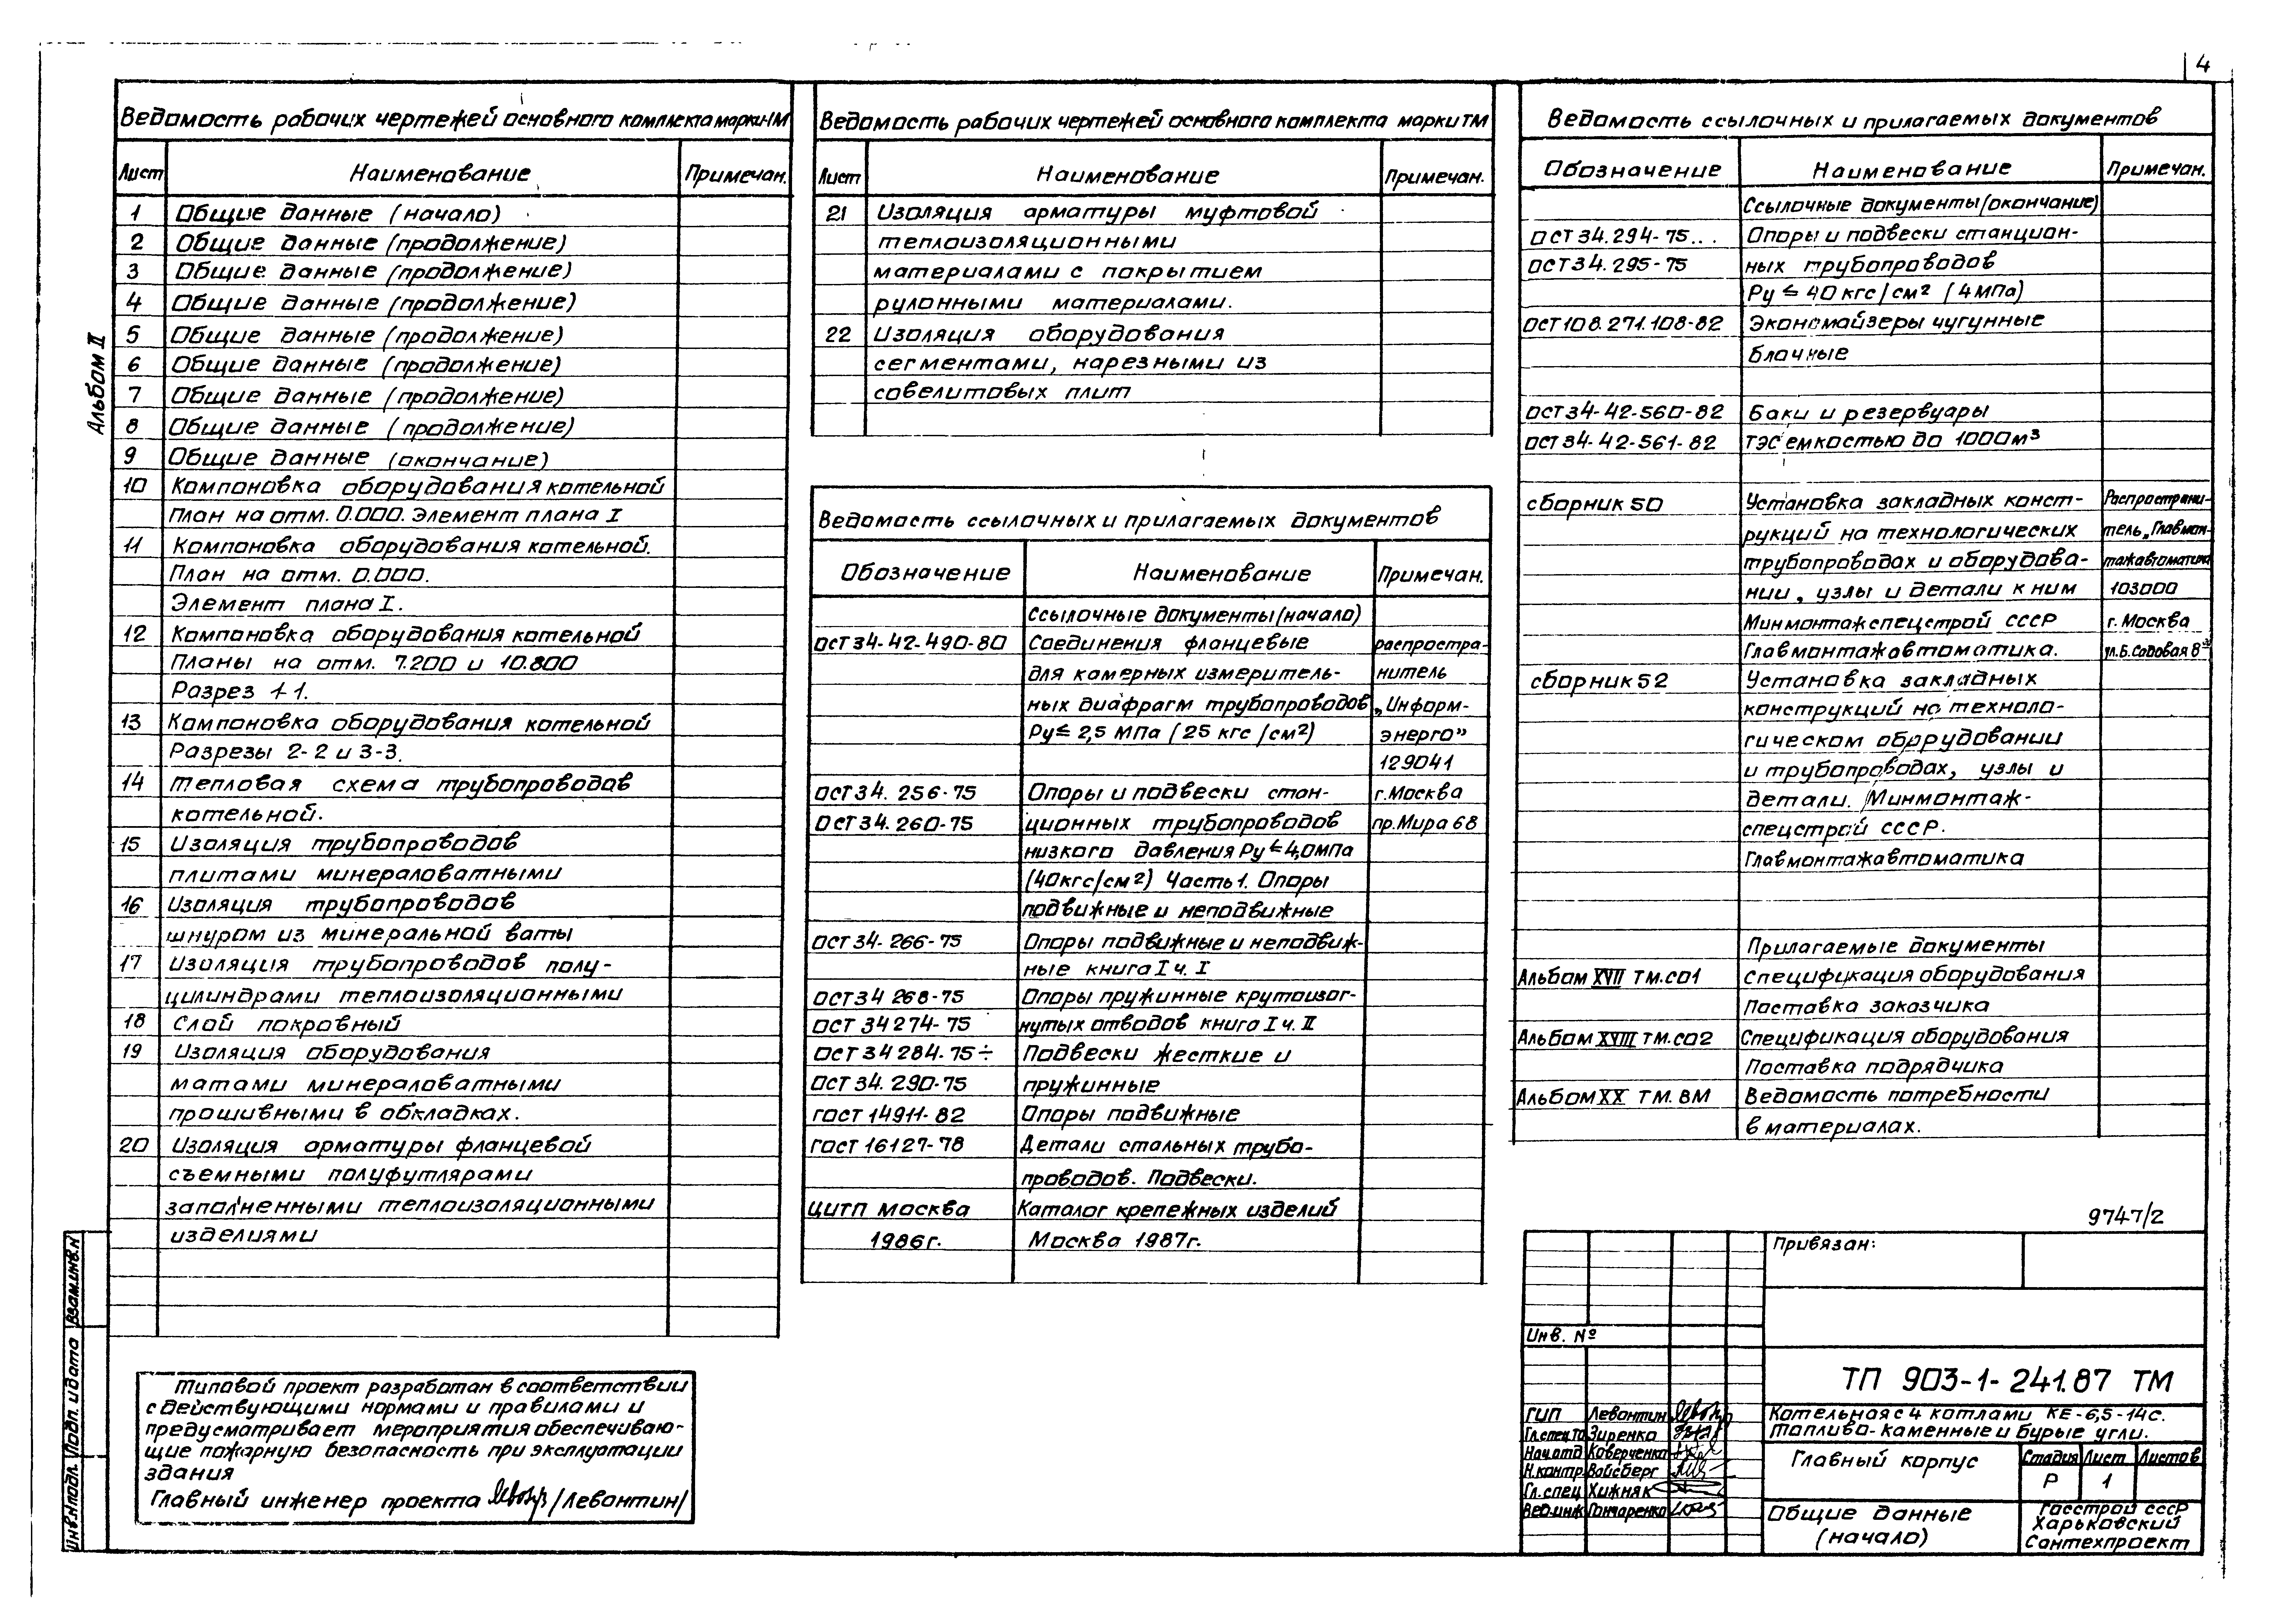 4
Альбом II
Ведомость рабочих чертежей основного комплекта марки ТМ
Лист Наименование Примечан.
1 Общие данные (начало)
2 Общие данные (продолжение)
3 Общие данные (продолжение)
4 Общие данные (продолжение)
5 Общие данные (продолжение)
6 Общие данные (продолжение)
7 Общие данные (продолжение)
8 Общие данные (продолжение)
9 Общие данные (окончание)
10 Компоновка оборудования котельной
План на отм. 0.000. Элемент плана I
11 Компоновка оборудования котельной.
План на отм. 0.000.
Элемент плана I.
12 Компоновка оборудования котельной
Планы на отм. 7.200 и 10.800
Разрез 1-1.
13 Компоновка оборудования котельной
Разрезы 2-2 и 3-3.
14 Тепловая схема трубопроводов
котельной.
15 Изоляция трубопроводов
плитами минераловатными
16 Изоляция трубопроводов
шнуром из минеральной ваты
17 Изоляция трубопроводов полу-
цилиндрами теплоизоляционными
18 Слой покровный
19 Изоляция оборудования
матами минераловатными
прошивными в обкладках.
20 Изоляция арматуры фланцевой
съемными полуфутлярами
заполненными теплоизоляционными
изделиями
Типовой проект разработан в соответствии
с действующими нормами и правилами и
предусматривает мероприятия обеспечиваю-
щие пожарную безопасность при эксплуатации
здания
Главный инженер проекта /Левантин/
Ведомость рабочих чертежей основного комплекта марки ТМ
Лист Наименование Примечан.
21 Изоляция арматуры муфтовой
теплоизоляционными
материалами с покрытием
рулонными материалами.
22 Изоляция оборудования
сегментами, нарезными из
совелитовых плит
Ведомость ссылочных и прилагаемых документов
Обозначение Наименование Примечан.
Ссылочные документы (начало)
ОСТ 34-42-490-80 Соединения фланцевые распростра-
для камерных измеритель- нитель
ных диафрагм трубопроводов „Информ-
Ру≤ 2,5 МПа (25 кгс/см²) энерго”
129041
ОСТ 34. 256-75 Опоры и подвески стан- г.Москва
ОСТ 34. 260-75 ционных трубопроводов пр.Мира 68
низкого давления Ру≤4,0МПа
(40кгс/см²) Часть 1. Опоры
подвижные и неподвижные
ОСТ 34- 266-75 Опоры подвижные и неподвиж-
ные книга I ч. I
ОСТ 34 268-75 Опоры пружинные крутоизог-
ОСТ 34 274-75 нутых отводов книга I ч. II
ОСТ 34 284.75÷ Подвески жесткие и
ОСТ 34. 290-75 пружинные
ГОСТ 14911-82 Опоры подвижные
ГОСТ 16127-78 Детали стальных трубо-
проводов. Подвески.
ЦИТП Москва Каталог крепежных изделий
1986г. Москва 1987г.
Ведомость ссылочных и прилагаемых документов
Обозначение Наименование Примечан.
Ссылочные документы (окончание)
ОСТ 34.294-75... Опоры и подвески станцион-
ОСТ 34.295-75 ных трубопроводов
Ру ≤ 40 кгс/см² (4МПа)
ОСТ 108.271.108-82 Экономайзеры чугунные
блочные
ОСТ 34-42-560-82 Баки и резервуары
ОСТ 34-42-561-82 ТЭС емкостью до 1000м³
сборник 50 Установка закладных конст- Распространи-
рукций на технологических тель „Главмон-
трубопроводах и оборудова- тажавтоматика
нии, узлы и детали к ним 103000
Минмонтажспецстрой СССР г. Москва
Главмонтажавтоматика. ул.Б.Садовая 8
сборник 52 Установка закладных
конструкций на техноло-
гическом оборудовании
и трубопроводах, узлы и
детали. Минмонтаж-
спецстрой СССР.
Главмонтажавтоматика
Прилагаемые документы
Альбом XVII ТМ.СО1 Спецификация оборудования
Поставка заказчика
Альбом XVIII ТМ.СО2 Спецификация оборудования
Поставка подрядчика
Альбом XX ТМ.ВМ Ведомость потребности
в материалах.
9747/2
Привязан:
Инв. №
ТП 903-1-241.87 ТМ
Котельная с 4 котлами КЕ-6,5-14с.
Топливо-каменные и бурые угли.
ГИП Левантин
Гл.спец.ТО Зиренко
Нач.отд Каверченко
Н.контр. Вайсберг
Гл.спец Хижняк
Вед.инж Гончаренко
Главный корпус
Стадия Лист Листов
Р 1
Общие данные
(начало)
Госстрой СССР
Харьковский
Сантехпроект
Инв.Nподл. Подп. и дата Взам.инв.N